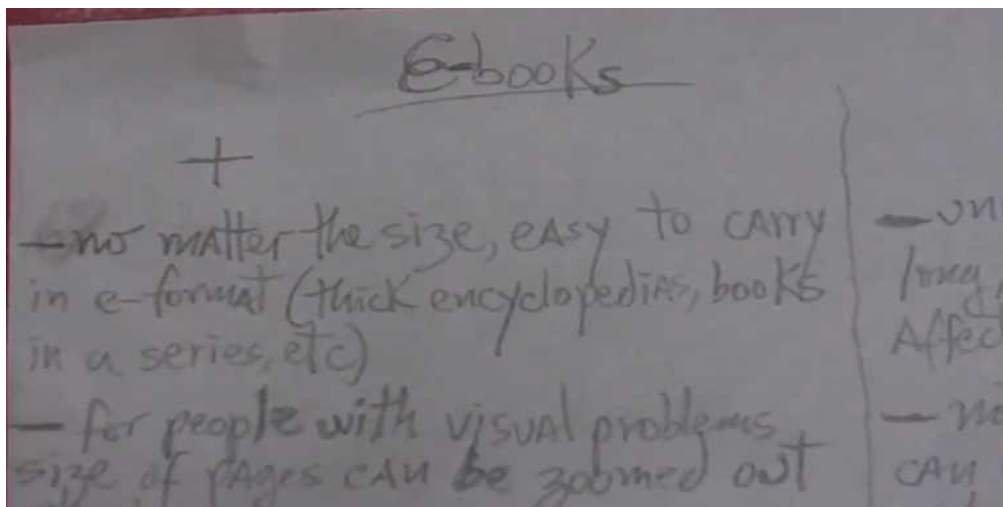 E-books
+
- no matter the size, easy to carry
in e-format (thick encyclopedias, books
in a series, etc)
- for people with visual problems,
size of pages can be zoomed out
- un
long,
Affec
-
can